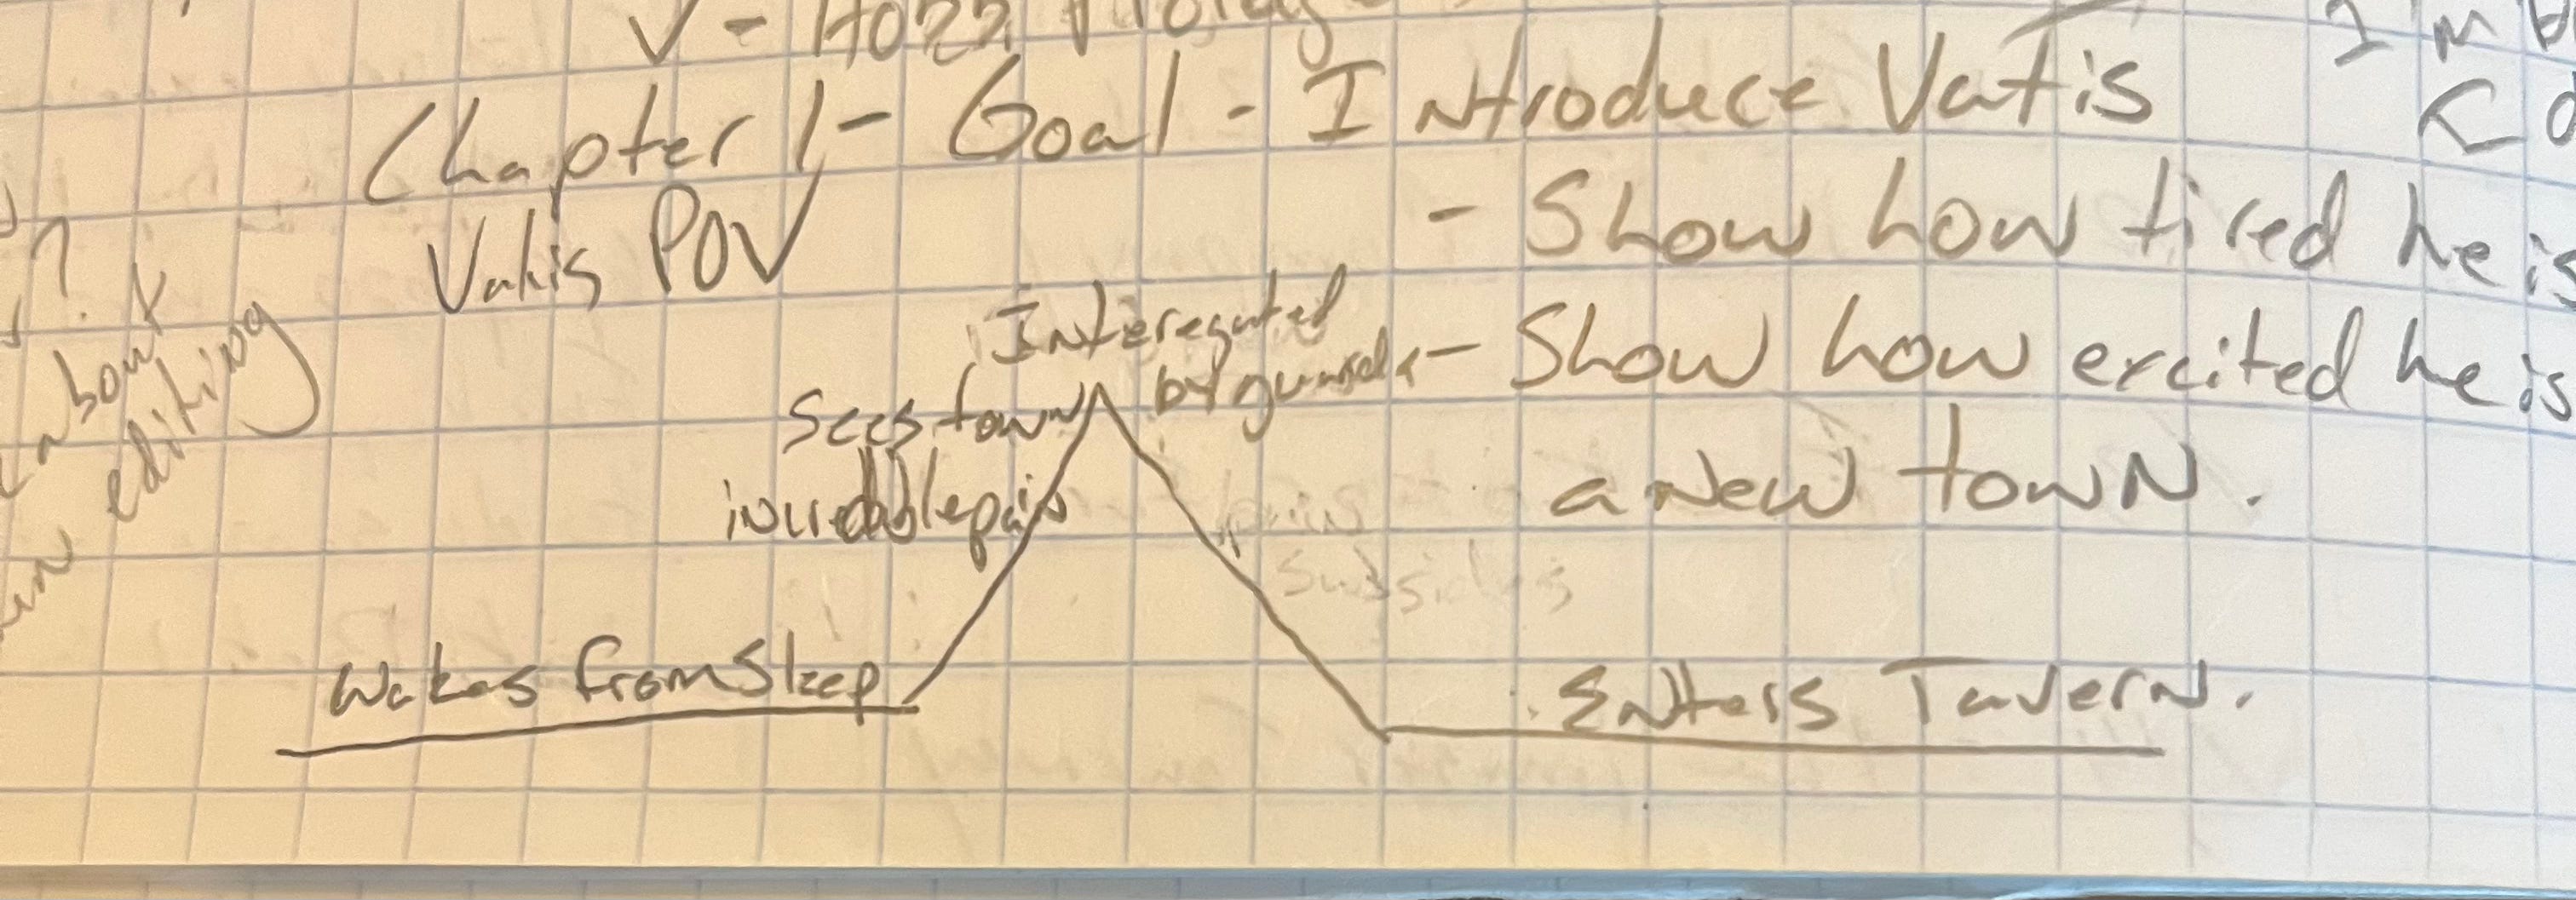 Chapter 1 - Goal - Introduce Vatis
Vatis POV
- Show how tired he is
- Show how excited he is
a new town.
about
editing
I'm
Interegated
by guards
Sees town
incredable pain
pain
subsides
Wakes from Sleep
Enters Tavern.